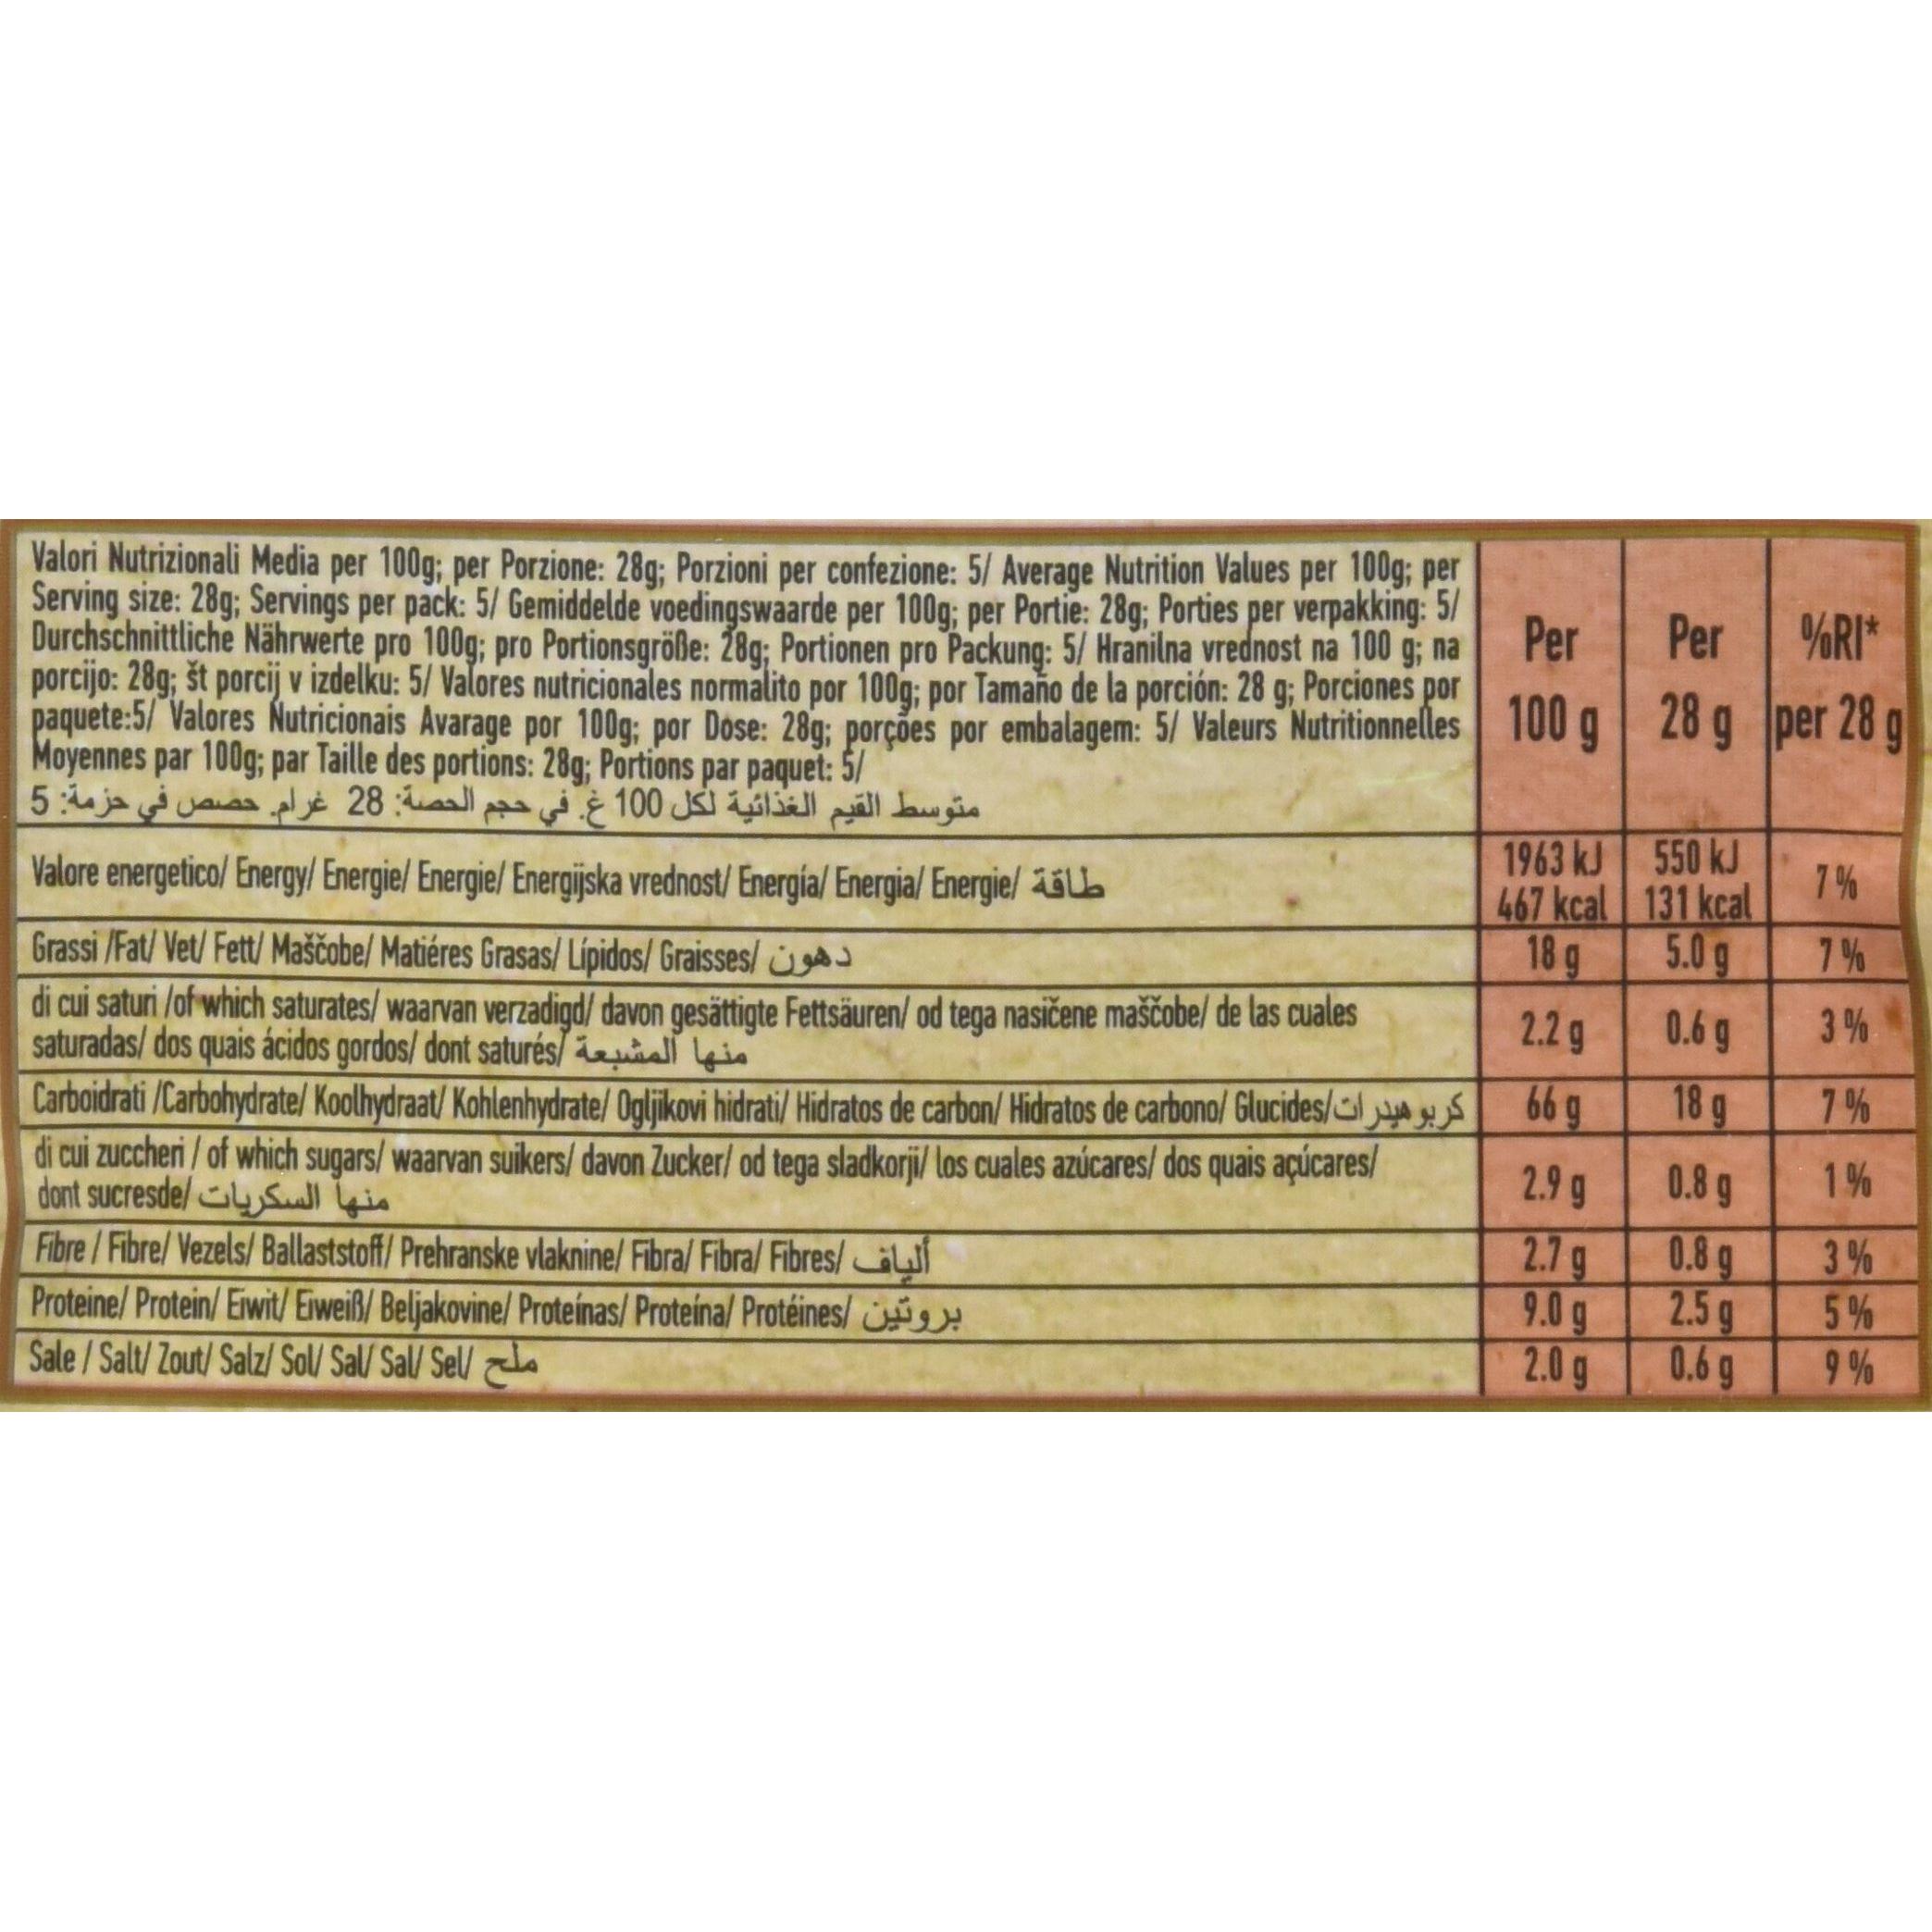 Valori Nutrizionali Media per 100g; per Porzione: 28g; Porzioni per confezione: 5/ Average Nutrition Values per 100g; per
Serving size: 28g; Servings per pack: 5/ Gemiddelde voedingswaarde per 100g; per Portie: 28g; Porties per verpakking: 5/
Durchschnittliche Nährwerte pro 100g; pro Portionsgröße: 28g; Portionen pro Packung: 5/ Hranilna vrednost na 100 g; na
porcijo: 28g; št porcij v izdelku: 5/ Valores nutricionales normalito por 100g; por Tamaño de la porción: 28 g; Porciones por
paquete:5/ Valores Nutricionais Avarage por 100g; por Dose: 28g; porções por embalagem: 5/ Valeurs Nutritionnelles
Moyennes par 100g; par Taille des portions: 28g; Portions par paquet: 5/
متوسط القيم الغذائية لكل 100 غ. في حجم الحصة: 28 غرام. حصص في حزمة: 5
Per 100 g
Per 28 g
%RI* per 28 g
Valore energetico/ Energy/ Energie/ Energie/ Energijska vrednost/ Energía/ Energia/ Energie/ طاقة
1963 kJ 550 kJ 7 %
467 kcal 131 kcal
Grassi /Fat/ Vet/ Fett/ Maščobe/ Matiéres Grasas/ Lípidos/ Graisses/ دهون 18 g 5.0 g 7 %
di cui saturi /of which saturates/ waarvan verzadigd/ davon gesättigte Fettsäuren/ od tega nasičene maščobe/ de las cuales
saturadas/ dos quais ácidos gordos/ dont saturés/ منها المشبعة 2.2 g 0.6 g 3 %
Carboidrati /Carbohydrate/ Koolhydraat/ Kohlenhydrate/ Ogljikovi hidrati/ Hidratos de carbon/ Hidratos de carbono/ Glucides/كربوهيدرات 66 g 18 g 7 %
di cui zuccheri / of which sugars/ waarvan suikers/ davon Zucker/ od tega sladkorji/ los cuales azúcares/ dos quais açúcares/
dont sucresde/ منها السكريات 2.9 g 0.8 g 1 %
Fibre / Fibre/ Vezels/ Ballaststoff/ Prehranske vlaknine/ Fibra/ Fibra/ Fibres/ ألياف 2.7 g 0.8 g 3 %
Proteine/ Protein/ Eiwit/ Eiweiß/ Beljakovine/ Proteínas/ Proteína/ Protéines/ بروتين 9.0 g 2.5 g 5 %
Sale / Salt/ Zout/ Salz/ Sol/ Sal/ Sal/ Sel/ ملح 2.0 g 0.6 g 9 %